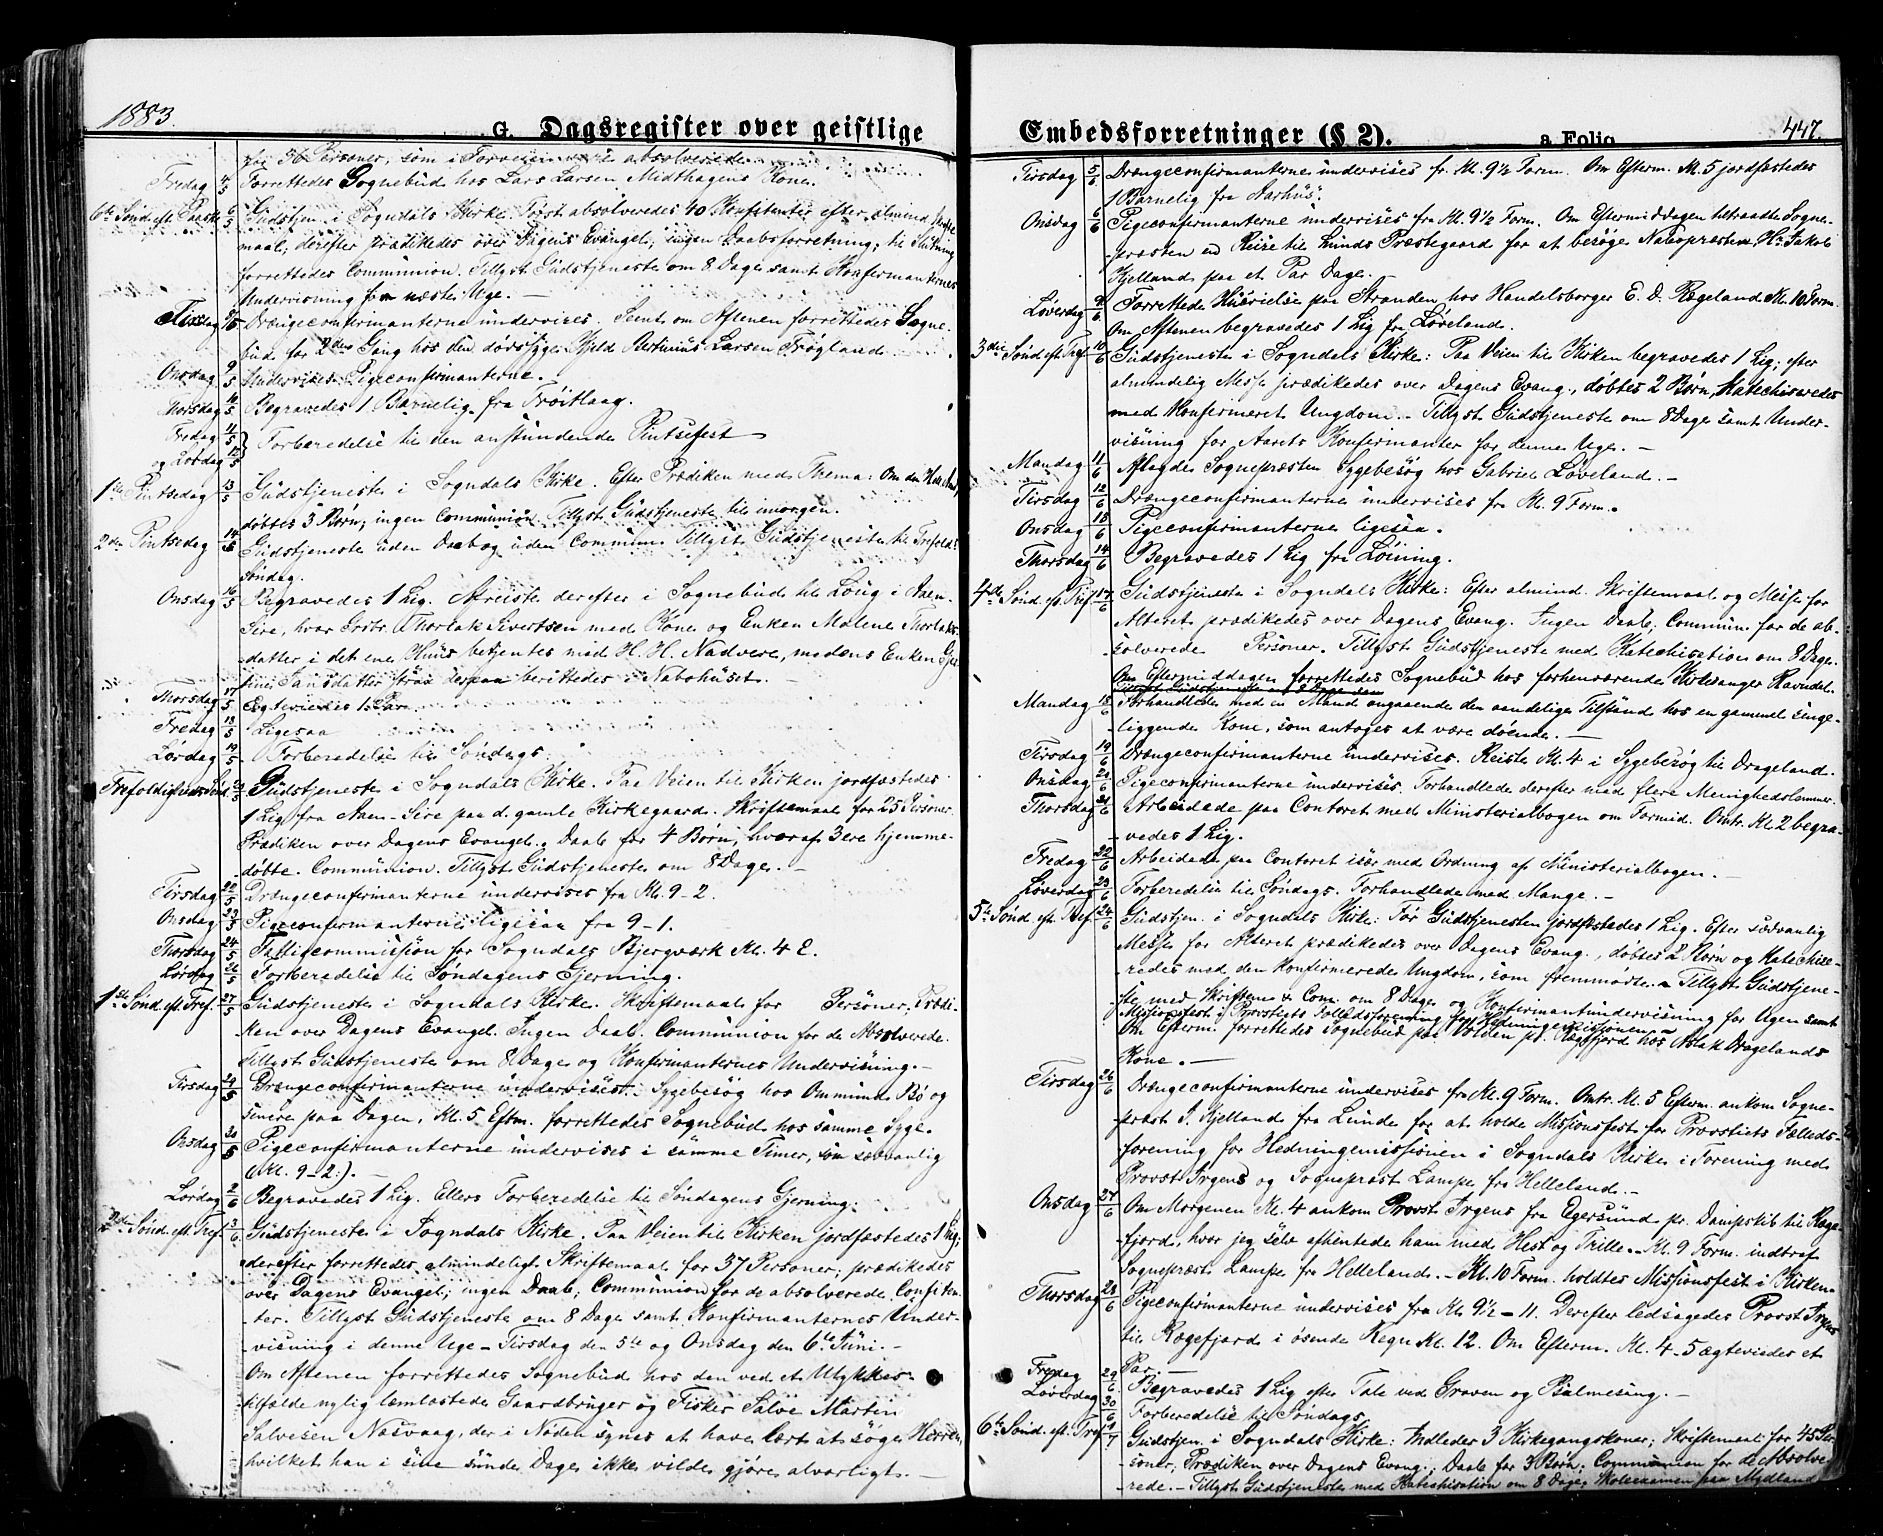 1883.
G. Dagsregister over geistlige
for 36 Personer, som i Forveien vare absolverede.
Fredag 4/5 Forrettedes Sognebud hos Lars Larsen Midthagens Kone.
6te Sønd. eft. Paaske 6/5 Gudstjen. i Sogndals Kirke. Først absolveredes 40 Konfitenter efter almind. Skrifte-
maal, derefter prædikedes over Dagens Evangel.; ingen Daabsforretning; til Slutning
forrettedes Communion. Tillyst Gudstjeneste om 8 Dage samt Konfirmanternes
Undervisning for næste Uge. –
Tirsdag 8/5 Drængeconfirmanterne undervises. Sent om Aftenen forrettedes Sogne-
bud for 2den Gang hos den dødssyge Kjeld Bertinius Larsen Frøyland.
Onsdag 9/5 Undervises Pigeconfirmanterne.
Thorsdag 10/5 Begravedes 1 Barnelig fra Frøitlaag.
Fredag 11/5
og Lørdag 12/5 Forberedelse til den anstundende Pintsefest
1ste Pintsedag 13/5 Gudstjeneste i Sogndals Kirke. Efter Prædiken med Thema: Om den Hellig Aand,
døbtes 3 Børn; ingen Communion. Tillyst Gudstjeneste til imorgen.
2den Pintsedag 14/5 Gudstjeneste uden Daab og uden Commun. Tillyst Gudstjeneste til Trefold.
Søndag.
Onsdag 16/5 Begravedes 1 Lig. Afreiste derefter i Sognebud til Løug i Aaen-
Sire, hvor Grstr. Thorlak Sivertsen med Kone og Enken Malene Thorlaks-
datter i det ene Huus betjentes med H. H. Nadvere, medens Enken
Jansdatter strax derpaa berettedes i Nabohuset. –
Thorsdag 17/5 Egteviedes 1 Par.
Fredag 18/5 Ligesaa
Lørdag 19/5 Forberedelse til Søndags.
Trefoldigheds Sønd. 20/5 Gudstjeneste i Sogndals Kirke. Paa Veien til Kirken jordfæstedes
1 Lig fra Aaen-Sire paa d. gamle Kirkegaard. Skriftemaal for 25 Personer.
Prædiken over Dagens Evangel. Daab for 4 Børn, hvoraf 3 ere hjemme-
døbte. Communion. Tillyst Gudstjeneste om 8 Dage. –
Tirsdag 22/5 Drængeconfirmanterne undervises fra Kl. 9–2.
Onsdag 23/5 Pigeconfirmanterne ligesaa fra 9–1.
Thorsdag 24/5 Fattigcommission for Sogndals Bjergværk Kl. 4 E.
Lørdag 26/5 Forberedelse til Søndagens Gjerning.
1ste Sønd. eft. Tref. 27/5 Gudstjeneste i Sogndals Kirke. Skriftemaal for Personer; Prædi-
ken over Dagens Evangel. Ingen Daab. Communion for de Absolverede.
Tillyst Gudstjeneste om 8 Dage og Konfirmanternes Undervisning. –
Tirsdag 29/5 Drængeconfirmanterne undervises. Sygebesøg hos Ommund Bø og
senere paa Dagen, Kl. 5 Eftm. forrettedes Sognebud hos samme Syge.
Onsdag 30/5 Pigeconfirmanterne undervises i samme Timer, som sedvanlig
(Kl. 9–2:). –
Lørdag 2/6 Begravedes 1 Lig. Ellers Forberedelse til Søndagens Gjerning.
2den Sønd. eft. Tref. 3/6 Gudstjeneste i Sogndals Kirke. Paa Veien til Kirken jordfæstedes 1 Lig;
derefter forrettedes almindeligt Skriftemaal for 37 Personer; prædikedes
over Dagens Evangel.; ingen Daab; Communion for de absolverede Confiten-
ter. Tillyst Gudstjeneste om 8 Dage samt Konfirmanternes Under-
visning i denne Uge – Tirsdag den 5te og Onsdag den 6te Juni. –
Om Aftenen forrettedes Sognebud hos den ved et Ulykkes-
tilfælde nylig lemlæstede Gaardbruger og Fisker Salve Martin
Salvesen Nesvaag, der i Nøden synes at have lært at søge Herren,
hvilket han i sine sunde Dage ikke vilde gjøre alvorligt. –
Embedsforretninger (§ 2).
a. Folio
447.
Tirsdag 5/6 Drængeconfirmanterne undervises fr. Kl. 9½ Form. Om Efterm. Kl. 5 jordfæstedes
1 Barnelig fra Aarhus.
Onsdag 6/6 Pigeconfirmanterne undervises fra Kl. 9½ Form. Om Eftermiddagen betraadte Sogne-
præsten en Reise til Lunds Præstegaard for at besøge Nabopræsten Hr. Jakob
Kjelland paa et Par Dage. –
Løverdag 9/6 Forrettede Husvielse paa Stranden hos Handelsborger E. D. Regeland Kl. 10 Form.
Om Aftenen begravedes 1 Lig fra Løveland.
3die Sønd. eft. Tref. 10/6 Gudstjeneste i Sogndals Kirke: Paa Veien til Kirken begravedes 1 Lig; efter
almindelig Messe prædikedes over Dagens Evang., døbtes 2 Børn, Katechiseredes
med konfirmeret Ungdom. – Tillyst Gudstjeneste om 8 Dage samt Under-
visning for Aarets Konfirmanter for denne Uge. –
Mandag 11/6 Aflagde Sognepræsten Sygebesøg hos Gabriel Løveland. –
Tirsdag 12/6 Drængeconfirmanterne undervises fra Kl. 9 Form.
Onsdag 13/6 Pigeconfirmanterne ligesaa.
Thorsdag 14/6 Begravedes 1 Lig fra Løining.
4de Sønd. eft. Tref. 17/6 Gudstjeneste i Sogndals Kirke: Efter almind. Skriftemaal og Messe for
Alteret prædikedes over Dagens Evang. Ingen Daab. Commun. for de ab-
solverede Personer. Tillyst Gudstjeneste med Katechisation om 8 Dage.
Om Eftermiddagen forrettedes Sognebud hos forhenværende Kirkesanger Ravndal.
Mandag 18/6 Forhandledes med en Mand angaaende den aandelige Tilstand hos en gammel senge-
liggende Kone, som antages at være døende. –
Tirsdag 19/6 Drængeconfirmanterne undervises. Reiste Kl. 4 i Sygebesøg til Drageland.
Onsdag 20/6 Pigeconfirmanterne undervises. Forhandlede derefter med flere Menighedslemmer.
Thorsdag 21/6 Arbeidede paa Contoret med Ministerialbogen om Formid. Omtr. Kl. 2 begra-
vedes 1 Lig.
Fredag 22/6 Arbeidede paa Contoret især med Ordning af Ministerialbogen. –
Løverdag 23/6 Forberedelse til Søndags. Forhandlede med Mange. –
5te Sønd. eft. Tref. 24/6 Gudstjen. i Sogndals Kirke: Før Gudstjenesten jordfæstedes 1 Lig. Efter sedvanlig
Messe for Alteret prædikedes over Dagens Evang., døbtes 2 Børn og Katechise-
redes med den konfirmerede Ungdom, som fremmødte. Tillyst Gudstjene-
ste med Skriftem. & Com. om 8 Dage og Konfirmantundervisning for Ugen samt
Missionsfest i Provstiets Fællesforening for Hedningemissionen. –
Om Efterm. forrettedes Sognebud paa Volden pr. Rægefjord hos Aslak Dragelands
Kone. –
Tirsdag 26/6 Drængeconfirmanterne undervises fra Kl. 9 Form. Omtr. Kl. 5 Efterm. ankom Sogne-
præst J. Kjelland fra Lunde for at holde Missionsfest for Provstiets Fælleds-
forening for Hedningemissionen i Sogndals Kirke i Forening med
Provst Irgens og Sognepræst Lampe fra Helleland. –
Onsdag 27/6 Om Morgenen Kl. 4 ankom Provst Irgens fra Egersund pr. Dampskib til Rege-
fjord, hvor jeg selv afhentede ham med Hest og Trille. – Kl. 9 Form. indtraf
Sognepræst Lampe fra Helleland. – Kl. 10 Form. holdtes Missionsfest i Kirken.
Thorsdag 28/6 Pigeconfirmanterne undervises fra Kl. 9½–11. Derefter ledsagedes Provst Irgens
til Rægefjord i øsende Regn Kl. 12. Om Efterm. Kl. 4–5 ægteviedes et
Par. –
Fredag 29/6 Begravedes 1 Lig efter Tale ved Graven og Psalmesang. –
Løverdag 30/6 Forberedelse til Søndags.
6te Sønd. eft. Tref. 1/7 Gudstjen. i Sogndals Kirke: Indleder 3 Kirkegangskoner; Skriftemaal for 45 Per-
soner; Prædiken over Dagens Evang.; Daab for 3 Børn; Communion for de Absolve-
rede. – Tillyst Gudstjeneste med Katechisation om 8 Dage; Skoleexamen paa Mydland